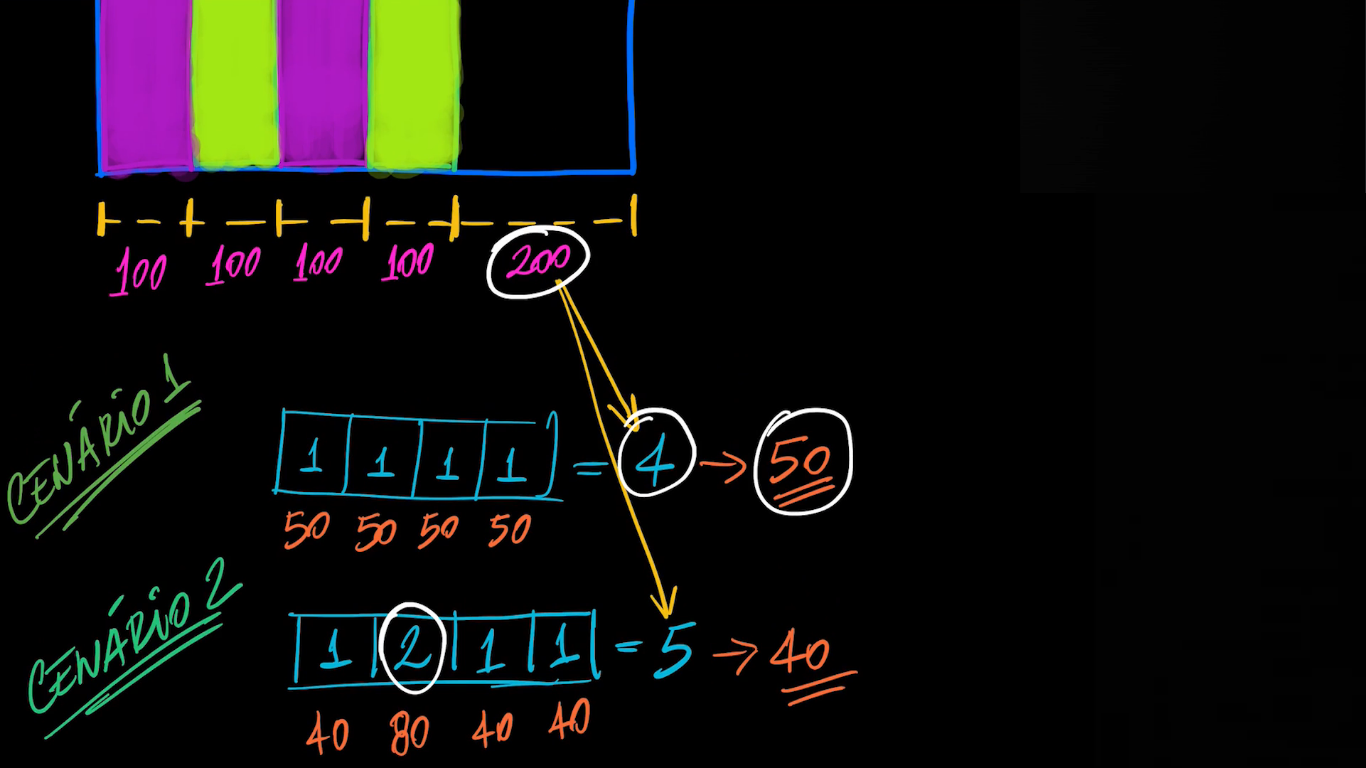 100 100 100 100 200
CENÁRIO 1
1 1 1 1 = 4 → 50
50 50 50 50
CENÁRIO 2
1 2 1 1 = 5 → 40
40 80 40 40